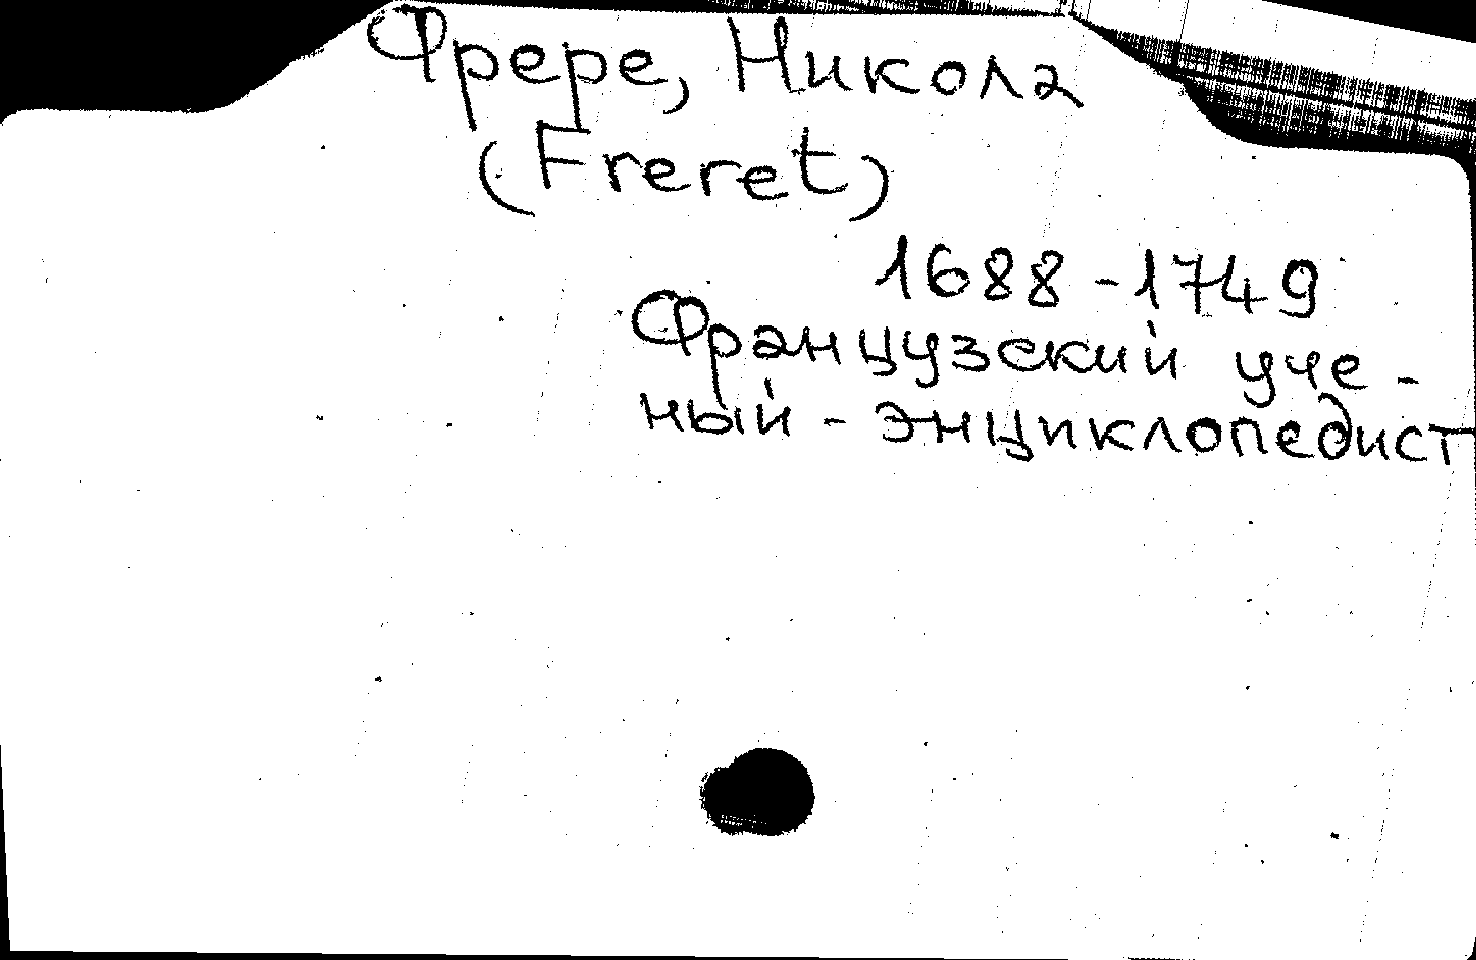 Фрере, Никола
(Freret)
1688-1749
Французский уче-
ный - энциклопедист